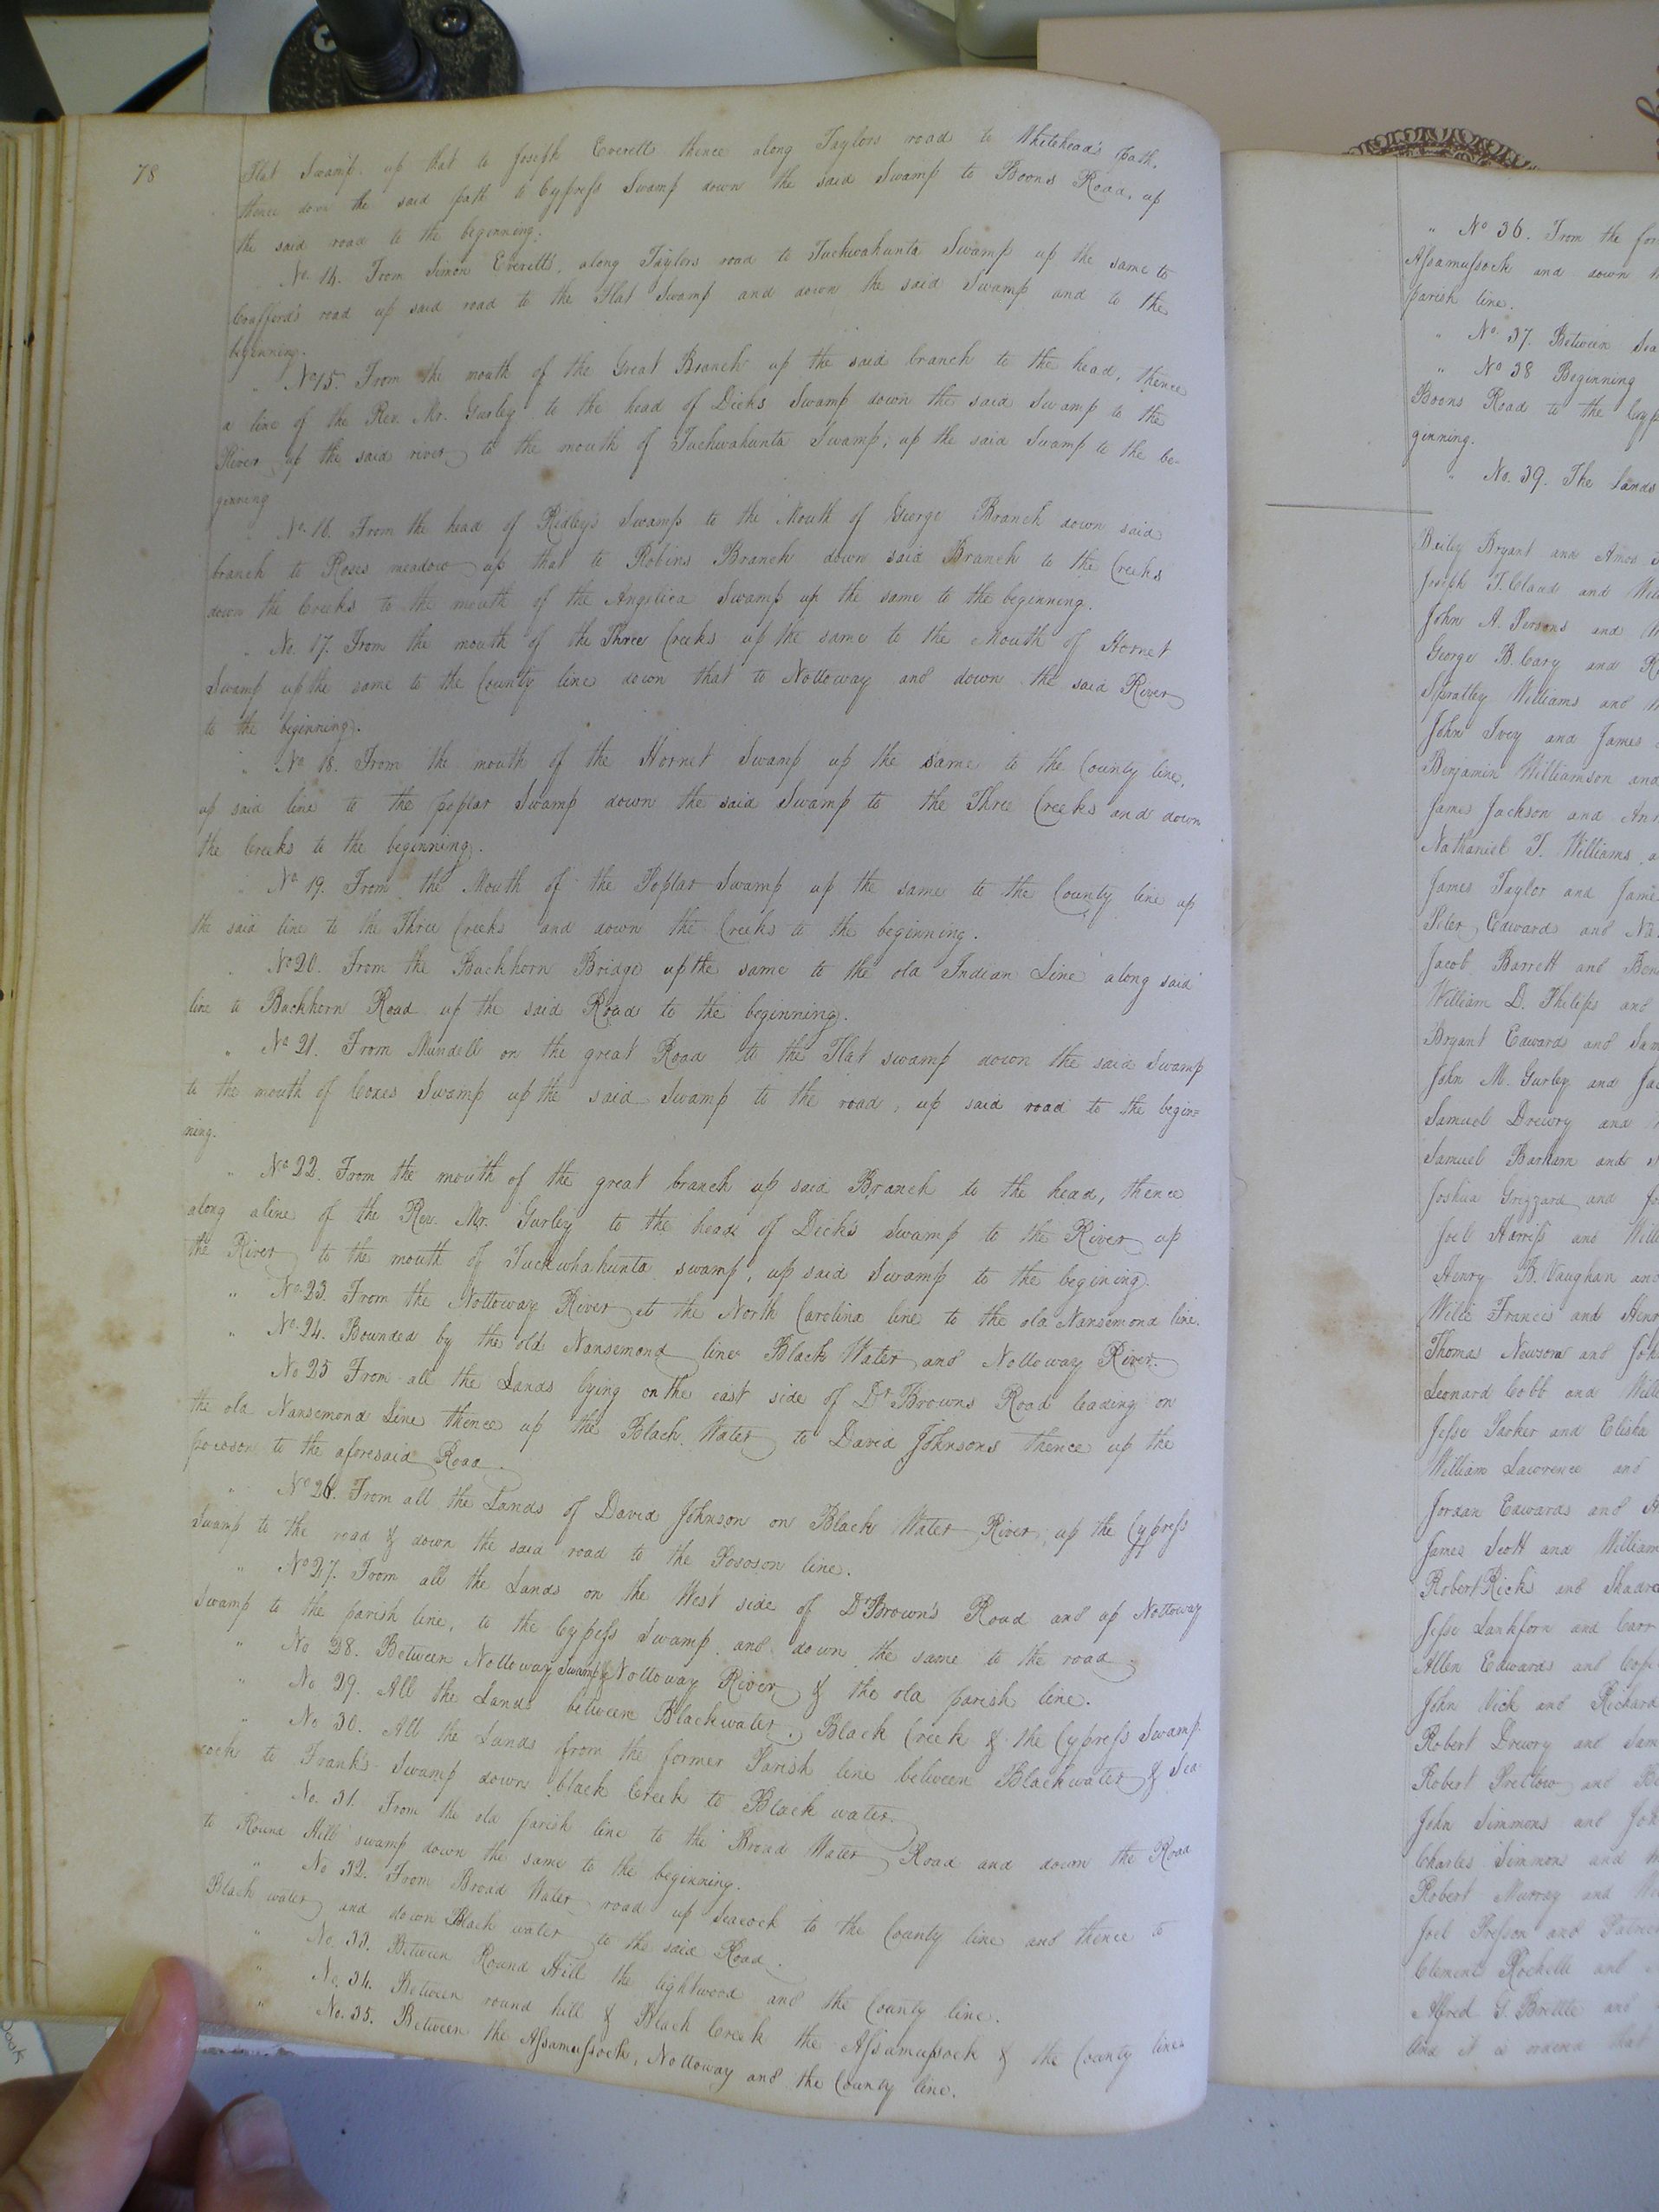 78
Flat Swamp. up that to Joseph Everetts thence along Taylors road to Whitehead's path,
thence down the said path to Cypress Swamp down the said Swamp to Boons Road, up
the said road to the beginning.
No. 14. From Simon Everetts, along Taylors road to Tuckwahunta Swamp up the same to
Crafford's road up said road to the Flat Swamp and down the said Swamp and to the
beginning.
" No 15. From the mouth of the Great Branch up the said branch to the head, thence
a line of the Rev. Mr. Gurley to the head of Dicks Swamp down the said Swamp to the
River up the said river to the mouth of Tuckwahunta Swamp, up the said Swamp to the be-
ginning
No. 16. From the head of Ridley's Swamp to the Mouth of George Branch down said
branch to Roses meadow up that to Robins Branch down said Branch to the Creeks
down the Creeks to the mouth of the Angelica Swamp up the same to the beginning.
" No. 17. From the mouth of the Three Creeks up the same to the Mouth of Hornet
Swamp up the same to the County line down that to Nottoway and down the said River
to the beginning.
" No 18. From the mouth of the Hornet Swamp up the same to the County line,
up said line to the poplar Swamp down the said Swamp to the Three Creeks and down
the Creeks to the beginning.
" No 19. From the Mouth of the Poplar Swamp up the same to the County line up
the said line to the Three Creeks and down the Creeks to the beginning.
" No 20. From the Buckhorn Bridge up the same to the old Indian Line along said
line to Buckhorn Road up the said Road to the beginning.
" No 21. From Mundell on the great Road to the Flat swamp down the said Swamp
to the mouth of Coxes Swamp up the said Swamp to the road, up said road to the begin=
ning.
" No 22. From the mouth of the great branch up said Branch to the head, thence
along a line of the Rev. Mr. Gurley to the head of Dick's Swamp to the River up
the River to the mouth of Tuckwhahunta swamp, up said Swamp to the begining.
" No. 23. From the Nottoway River at the North Carolina line to the old Nansemond line.
" No. 24. Bounded by the old Nansemond line Black Water and Nottoway River.
No 25 From all the Lands lying on the east side of Dr Browns Road leading on
the old Nansemond Line thence up the Black Water to David Johnsons thence up the
pocoson to the aforesaid Road.
" No 26. From all the Lands of David Johnson on Black Water River, up the Cypress
Swamp to the road & down the said road to the Pocoson line.
" No 27. From all the Lands on the West side of Dr Brown's Road and up Nottoway
Swamp to the parish line, to the Cypress Swamp and down the same to the road.
" No 28. Between Nottoway Swamp & Nottoway River & the old parish line.
" No 29. All the Lands between Blackwater, Black Creek & the Cypress Swamp.
" No 30. All the Lands from the former Parish line between Blackwater & Sea-
cock to Frank's Swamp down black Creek to Black water.
No. 31. From the old parish line to the Broad Water Road and down the Road
to Round Hill swamp down the same to the beginning.
" No 32. From Broad Water road up Seacock to the County line and thence to
Black water and down Black water to the said Road.
" No. 33. Between Round Hill the lightwood and the County line.
" No. 34. Between round hill & Black Creek the Assamussock & the County line.
" No. 35. Between the Assamussock, Nottoway and the County line.
" No 36. From the
Assamussock and down
parish line.
" No. 37. Between
" No 38 Beginning
Boons Road to the
ginning.
" No. 39. The Lands
Bailey Bryant and Amos
Joseph T. Claud and
John A. Persons and
George B. Cary and
Spratley Williams and
John Ivey and James
Benjamin Williamson and
James Jackson and
Nathaniel T. Williams
James Taylor and
Peter Edwards and
Jacob Barrett and
William D. Philips and
Bryant Edwards and
John M. Gurley and
Samuel Drewry and
Samuel Barham and
Joshua Grizzard and
Joel Harriss and
Henry B. Vaughan and
Willie Francis and
Thomas Newsom and
Leonard Cobb and
Jesse Parker and Elisha
William Lawrence and
Jordan Edwards and
James Scott and William
Robert Ricks and
Jesse Lankford and
Allen Edwards and
John Vick and Richard
Robert Drewry and
Robert Pretlow and
John Simmons and
Charles Simmons and
Robert Murray and
Joel Presson and
Clement Rochelle and
Alfred G. Brittle and
And it is ordered that